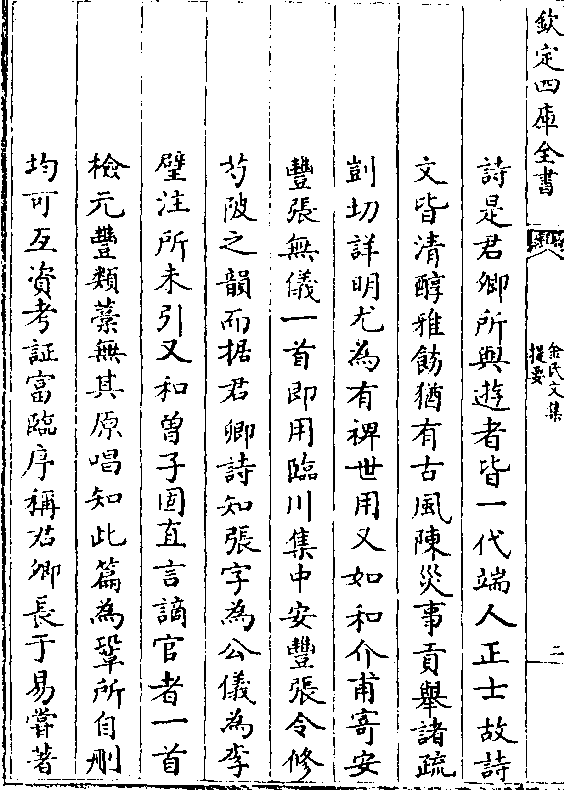 欽定四庫全書
金氏文集
提要
二
詩是君卿所與遊者皆一代端人正士故詩
文皆清醇雅飭猶有古風陳災事貢舉諸疏
剴切詳明尤為有裨世用又如和介甫寄安
豐張無儀一首即用臨川集中安豐張令修
芍陂之韻而据君卿詩知張字為公儀為李
壁注所未引又和曽子固直言謫官者一首
檢元豐類藁無其原唱知此篇為鞏所自刪
均可互資考証富臨序稱君卿長于易嘗著